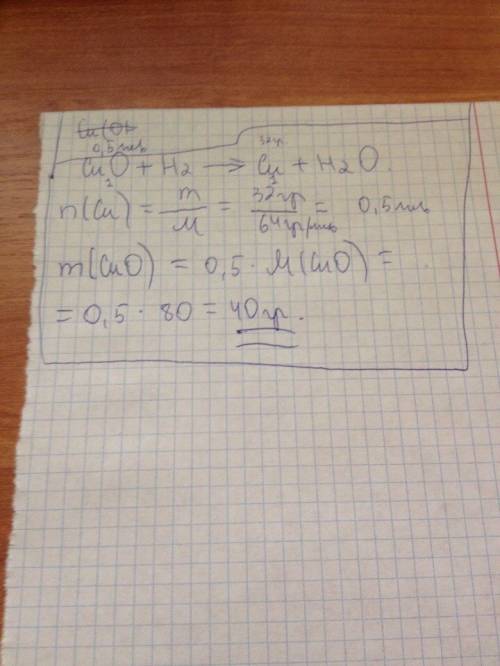 Cu(OH
0,5моль 32гр.
CuO + H2 → Cu + H2O.
1 1
n(Cu) = m/M = 32гр/64гр/моль = 0,5моль
m(CuO) = 0,5 · M(CuO) =
= 0,5 · 80 = 40гр.